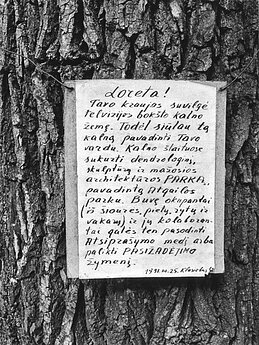 Loreta!
Tavo kraujas suvilgė
televizijos bokšto kalno
žemę. Todėl siūlau tą
kalną pavadinti Tavo
vardu. Kalno šlaituose
sukurti dendrologinį,
skulptūrų ir mažosios
architektūros PARKĄ,
pavadintą Atgailos
parku. Buvę okupantai
(iš šiaurės, pietų, rytų ir
vakarų) ir jų kolaboran-
tai galės ten pasodinti
Atsiprašymo medį arba
palikti PASIŽADĖJIMO
žymenį.
1991.